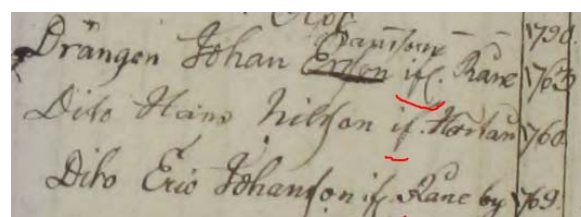 1790.
Drängen Johan Ersson if. Rane 1763
Dito Hans Nilsson if. 1760
Dito Eric Johansson if. Rane by 1769.